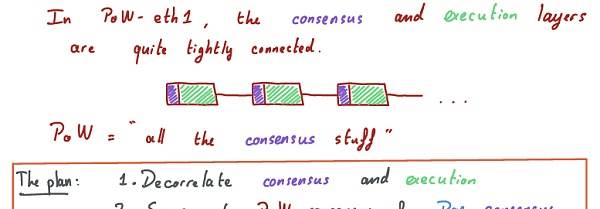 In PoW-eth1, the consensus and execution layers
are quite tightly connected.
...
PoW = "all the consensus stuff"
The plan: 1. Decorrelate consensus and execution
PoW consensus